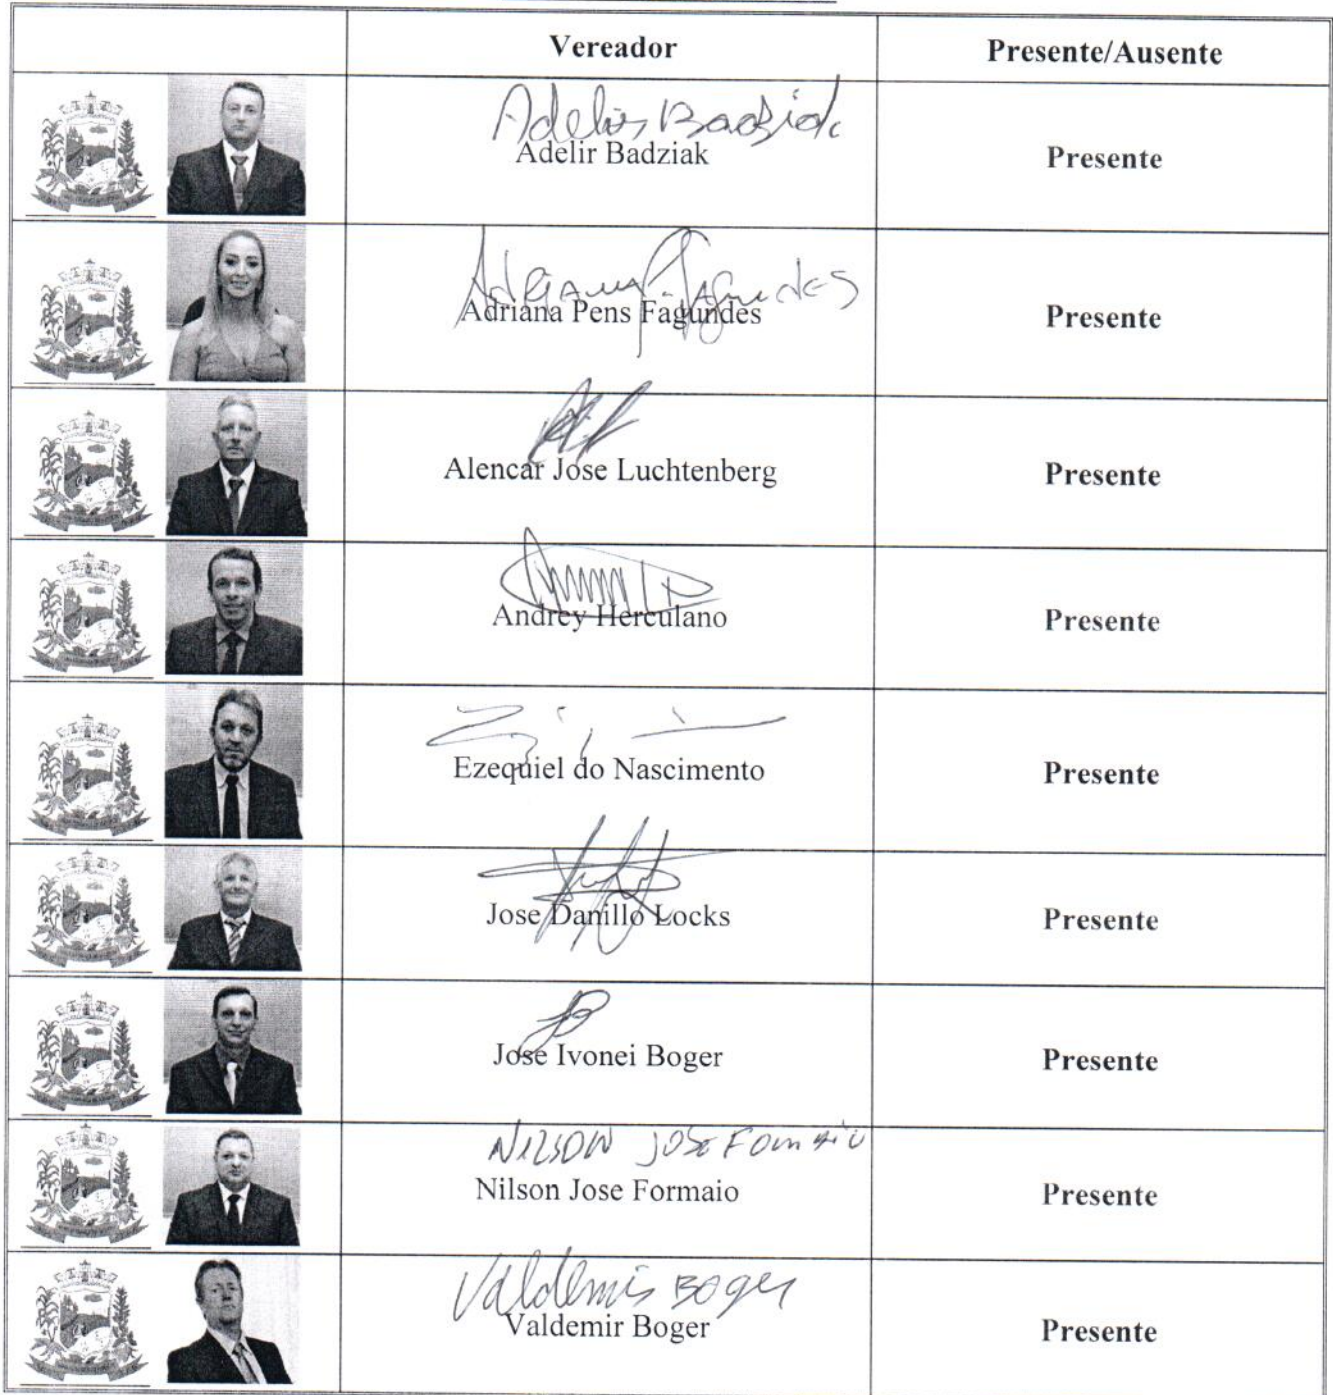 Vereador Presente/Ausente
Adelir Badziak
Adelir Badziak Presente
Adriana P. Fagundes
Adriana Pens Fagundes Presente
Alencar Jose Luchtenberg Presente
Andrey Herculano Presente
Ezequiel do Nascimento Presente
Jose Danillo Locks Presente
Jose Ivonei Boger Presente
Nilson Jose Formaio
Nilson Jose Formaio Presente
Valdemir Boger
Valdemir Boger Presente